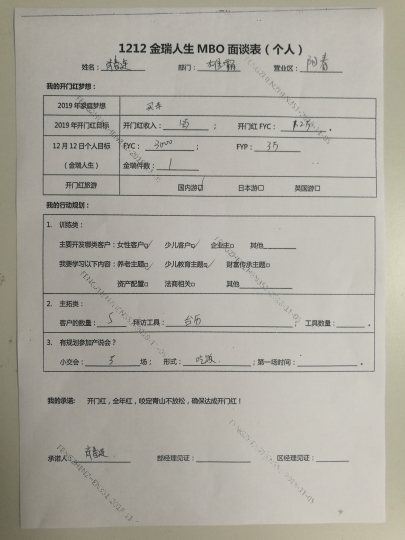 1212 金瑞人生 MBO 面谈表（个人）
姓名： 部门： 营业区：
我的开门红梦想：
2019 年家庭梦想 买车
2019 年开门红目标 开门红收入： ； 开门红 FYC： ；
12 月 12 日个人目标 FYC： 3000 FYP： 3万
（金瑞人生） 金瑞件数： 1
开门红旅游 国内游□ 日本游□ 英国游□
我的行动规划：
1. 训练类：
主要开发哪类客户：女性客户□√ 少儿客户□√ 企业主□ 其他
我要学习以下内容：养老主题□ 少儿教育主题□√ 财富传承主题□
资产配置□ 法商相关□ 其他
2. 主拓类：
客户的数量： 5 拜访工具： 台历 ；工具数量： 。
3. 有规划参加产说会？
小交会： 场； 形式： 吃饭 ；第一场时间： 。
我的承诺： 开门红，全年红，咬定青山不放松，确保达成开门红！
承诺人： 部经理见证： 区经理见证：